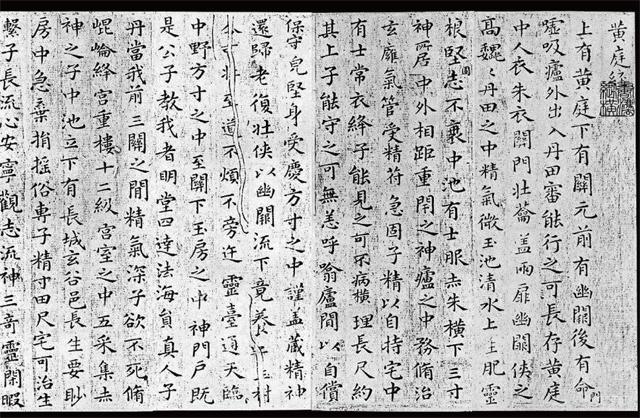 黃庭經
上有黃庭下有關元前有幽闕後有命門
噓吸廬外出入丹田審能行之可長存黃庭
中人衣朱衣關門壯蘥蓋兩扉幽闕俠之
高魏〻丹田之中精氣微玉池清水上生肥靈
根堅志不衰中池有士服赤朱橫下三寸
神所居中外相距重閉之神廬之中務脩治
玄廱氣管受精符急固子精以自持宅中
有士常衣絳子能見之可不病橫理長尺約
其上子能守之可無恙呼噏廬間以自償
保守完堅身受慶方寸之中謹蓋藏精神
還歸老復壯俠以幽闕流下竟養
至道不煩不旁迕靈臺通天臨
中野方寸之中至關下玉房之中神門戶既
是公子教我者明堂四達法海員真人子
丹當我前三關之間精氣深子欲不死脩
崐崘絳宮重樓十二級宮室之中五采集赤
神之子中池立下有長城玄谷邑長生要眇
房中急棄捐搖俗專子精寸田尺宅可治生
繫子長流心安寧觀志流神三奇靈閑暇